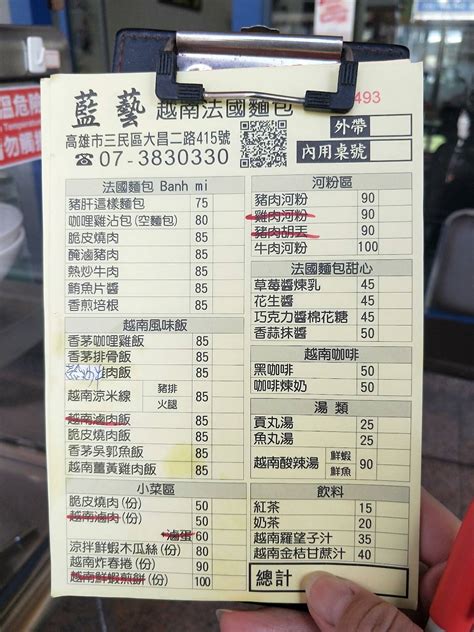 溫危險
勿觸摸
493
藍藝 越南法國麵包
高雄市三民區大昌二路415號
☎07-3830330
外帶
內用桌號
法國麵包 Banh mi
豬肝這樣麵包 75
咖哩雞沾包(空麵包) 80
脆皮燒肉 85
醃滷豬肉 85
熱炒牛肉 85
鮪魚片醬 85
香煎培根 85
越南風味飯
香茅咖哩雞飯 85
香茅排骨飯 85
雞肉飯 85
越南涼米線 豬排 火腿 85
越南滷肉飯 85
脆皮燒肉飯 85
香茅吳郭魚飯 85
越南薑黃雞肉飯 85
小菜區
脆皮燒肉(份) 50
越南滷肉(份) 50
滷蛋 60
涼拌鮮蝦木瓜絲(份) 80
越南炸春捲(份) 90
越南鮮蝦煎餅(份) 100
河粉區
豬肉河粉 90
雞肉河粉 90
豬肉胡志 90
牛肉河粉 100
法國麵包甜心
草莓醬煉乳 45
花生醬 45
巧克力醬棉花糖 45
香蒜抹醬 50
越南咖啡
黑咖啡 50
咖啡煉奶 50
湯 類
貢丸湯 25
魚丸湯 25
越南酸辣湯 鮮蝦 鮮魚 90
飲料
紅茶 15
奶茶 20
越南羅望子汁 35
越南金桔甘蔗汁 40
總計